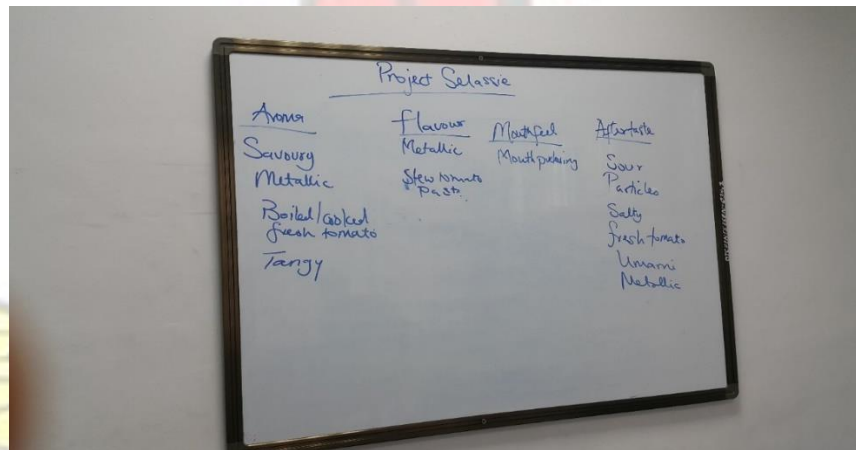 Project Selassie
Aroma
Savoury
Metallic
Boiled/cooked
fresh tomato
Tangy
Flavour
Metallic
Stew tomato
paste
Mouthfeel
Mouth puckering
Aftertaste
Sour
Particles
Salty
fresh tomato
Umami
Metallic